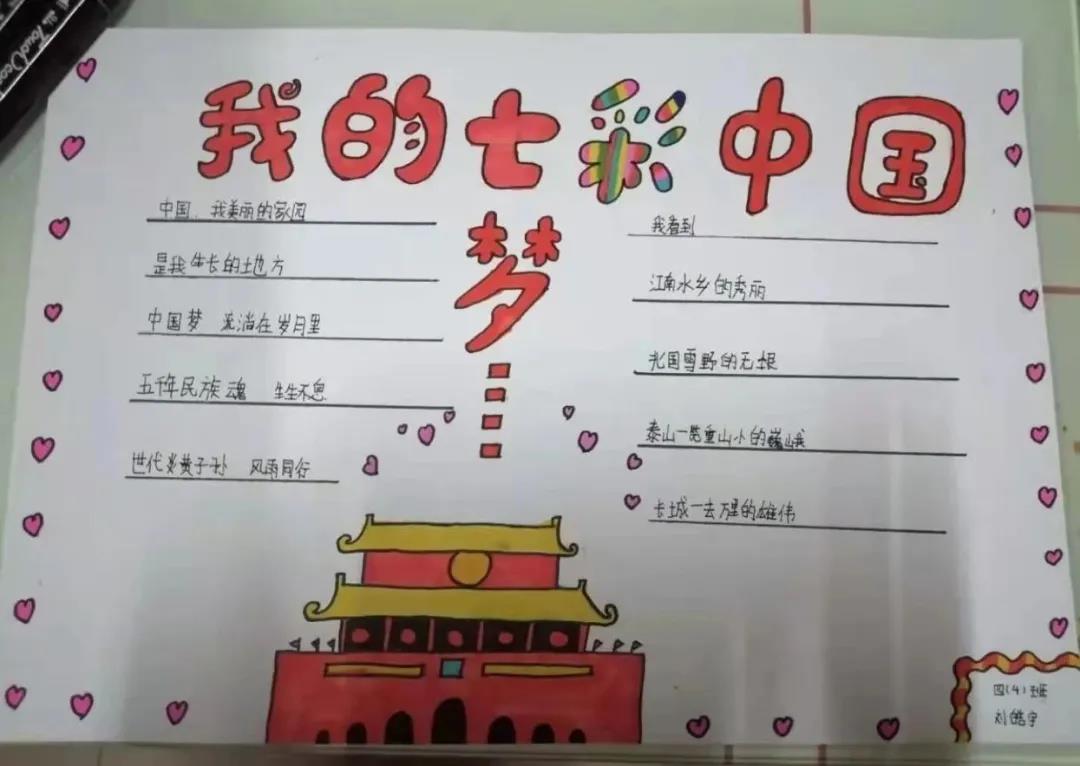 我的七彩中国
梦
中国、我美丽的家园
是我生长的地方
中国梦 流淌在岁月里
五千年民族魂 生生不息
世代炎黄子孙 风雨同行
我看到
江南水乡的秀丽
北国雪野的无垠
泰山一览重山小的巍峨
长城一去万里的雄伟
四(4)班
刘皓宇
Touch